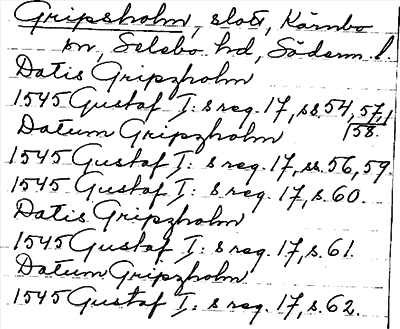 Gripsholm, slott, Kärnbo
sn, Selebo hd, Söderm. l.
Datis Gripzholm
1545 Gustaf I:s reg. 17, ss. 54, 57,
58.
Datum Gripzholm
1545 Gustaf I:s reg. 17, ss. 56, 59.
1545 Gustaf I:s reg. 17, s. 60.
Datis Gripzholm
1545 Gustaf I:s reg. 17, s. 61.
Datum Gripzholm
1545 Gustaf I:s reg. 17, s. 62.